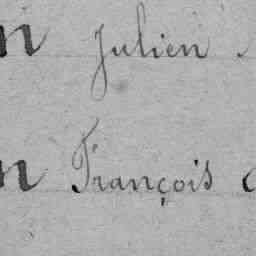 n Julien
n François